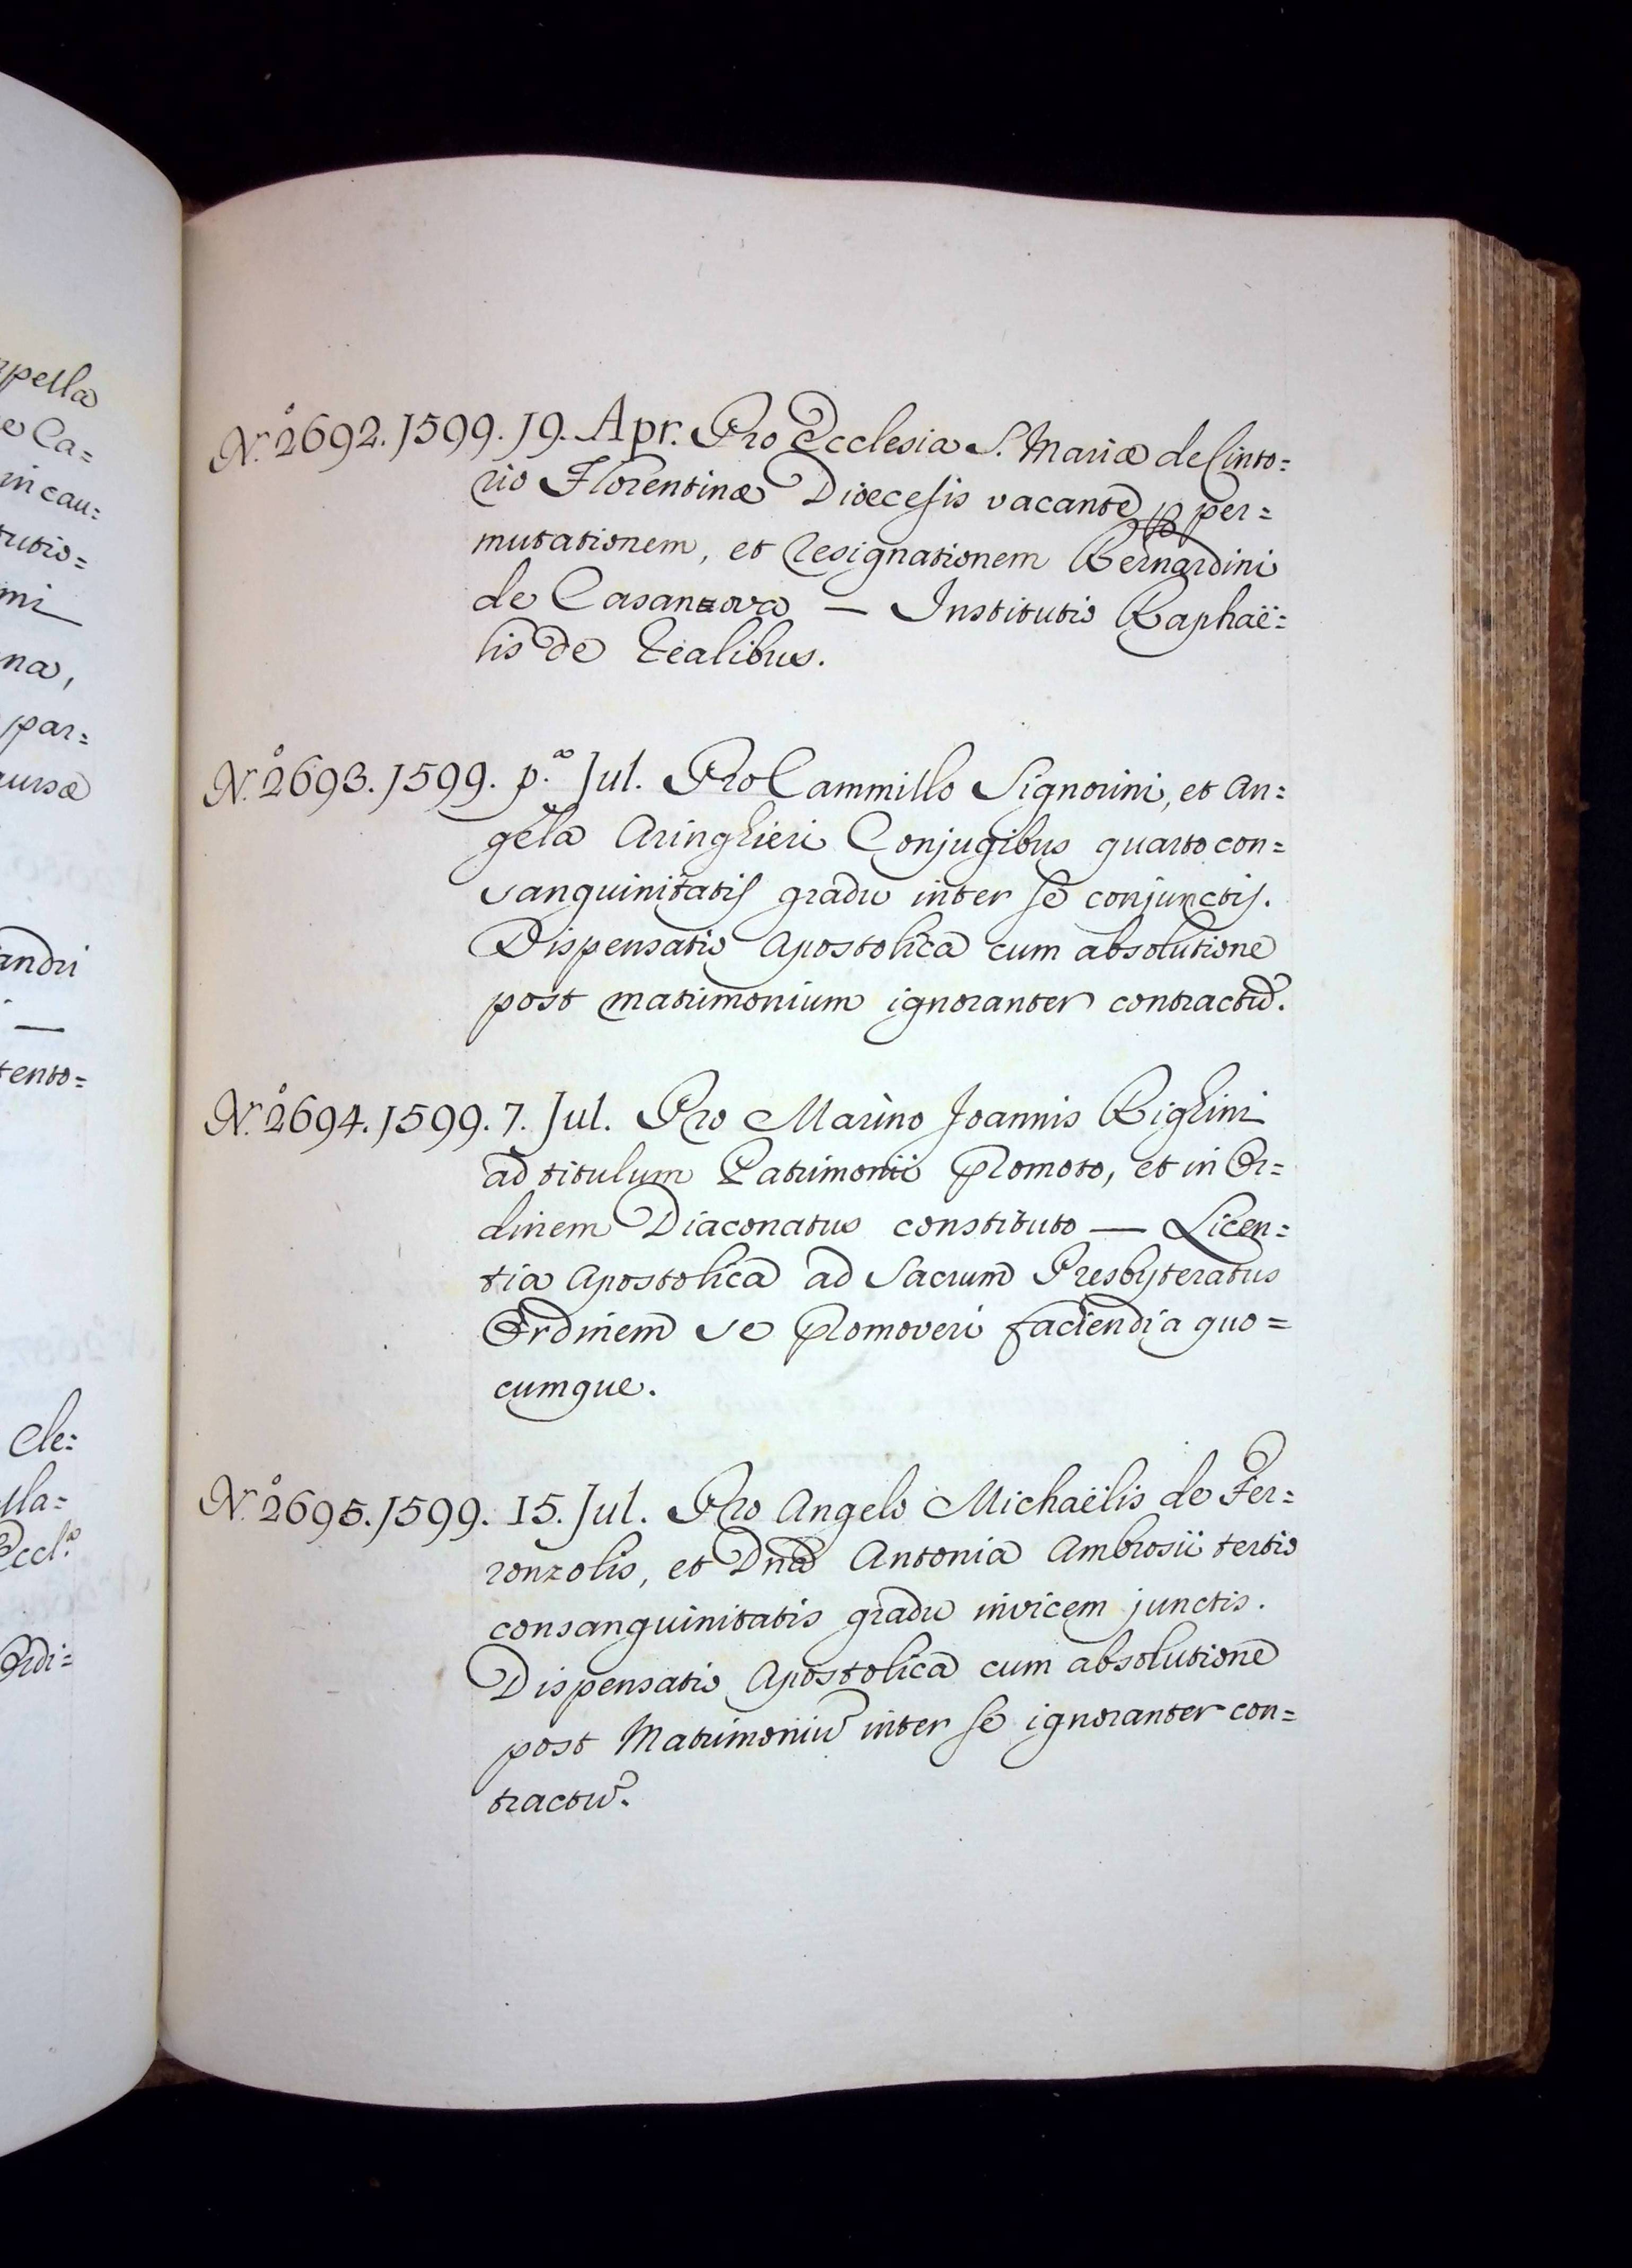 N.º 2692. 1599. 19. Apr. Pro Ecclesia S. Mariæ de Cinto=
rio Florentinæ Dioecesis vacante per=
mutationem, et resignationem Bernardini
de Casanova — Institutio Raphaë=
lis de Realibus.
N.º 2693. 1599. p.ª Jul. Pro Cammillo Signorini, et An=
gela Aringhieri Conjugibus quarto con=
sanguinitatis gradu inter se conjunctis.
Dispensatio Apostolica cum absolutione
post matrimonium ignoranter contractũ.
N.º 2694. 1599. 7. Jul. Pro Marino Joannis Righini
ad titulum Patrimonii promoto, et in Or=
dinem Diaconatus constituto — Licen=
tia Apostolica ad Sacrum Presbyteratus
Ordinem se promoveri faciendi a quo=
cumque.
N.º 2695. 1599. 15. Jul. Pro Angelo Michaëlis de Fer=
ronzolis, et Dnã Antonia Ambrosii tertio
consanguinitatis gradu invicem junctis.
Dispensatio Apostolica cum absolutione
post Matrimoniũ inter se ignoranter con=
tractũ.
pella
e Ca=
in cau=
tutio=
ni
na,
par=
ursæ
andri
—
tento=
Cle=
lla=
Eccl.ª
Ordi=